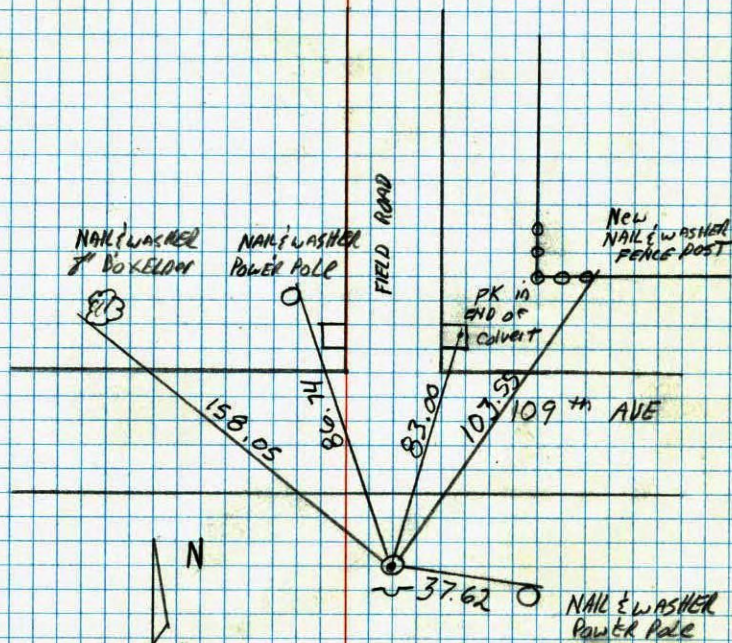 FIELD ROAD
NAIL & WASHER
8" BOXELDER
NAIL & WASHER
POWER POLE
New
NAIL & WASHER
FENCE POST
PK in
END OF
Culvert
158.05
86.74
83.00
103.55
109 th AVE
N
37.62
NAIL & WASHER
POWER POLE